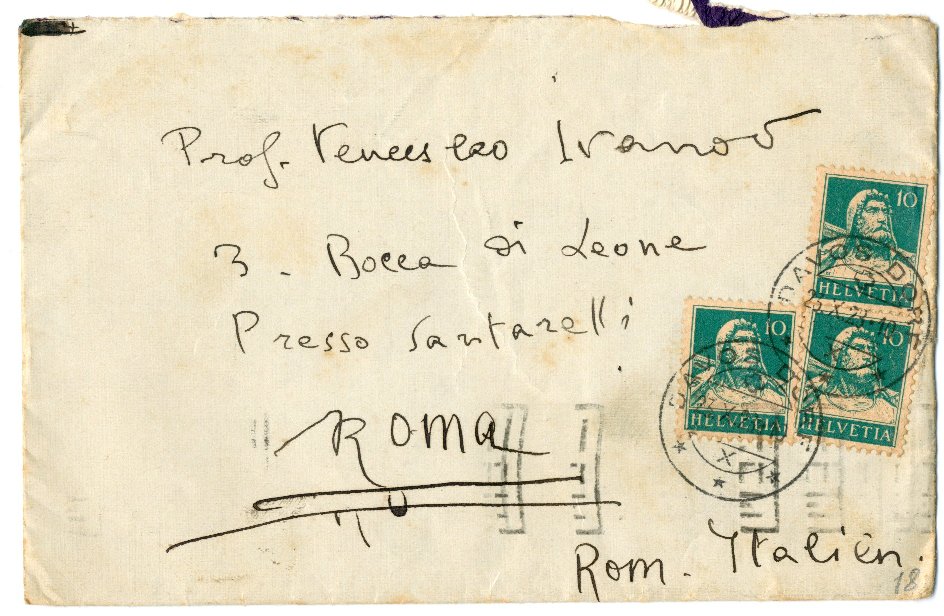 Prof. Venceslao Ivanov
3. Bocca di Leone
Presso Santarelli
ROMA
Rom. Italien.
10
HELVETIA
10
HELVETIA
10
HELVETIA
DAVOS DORF
DAVOS DORF
18